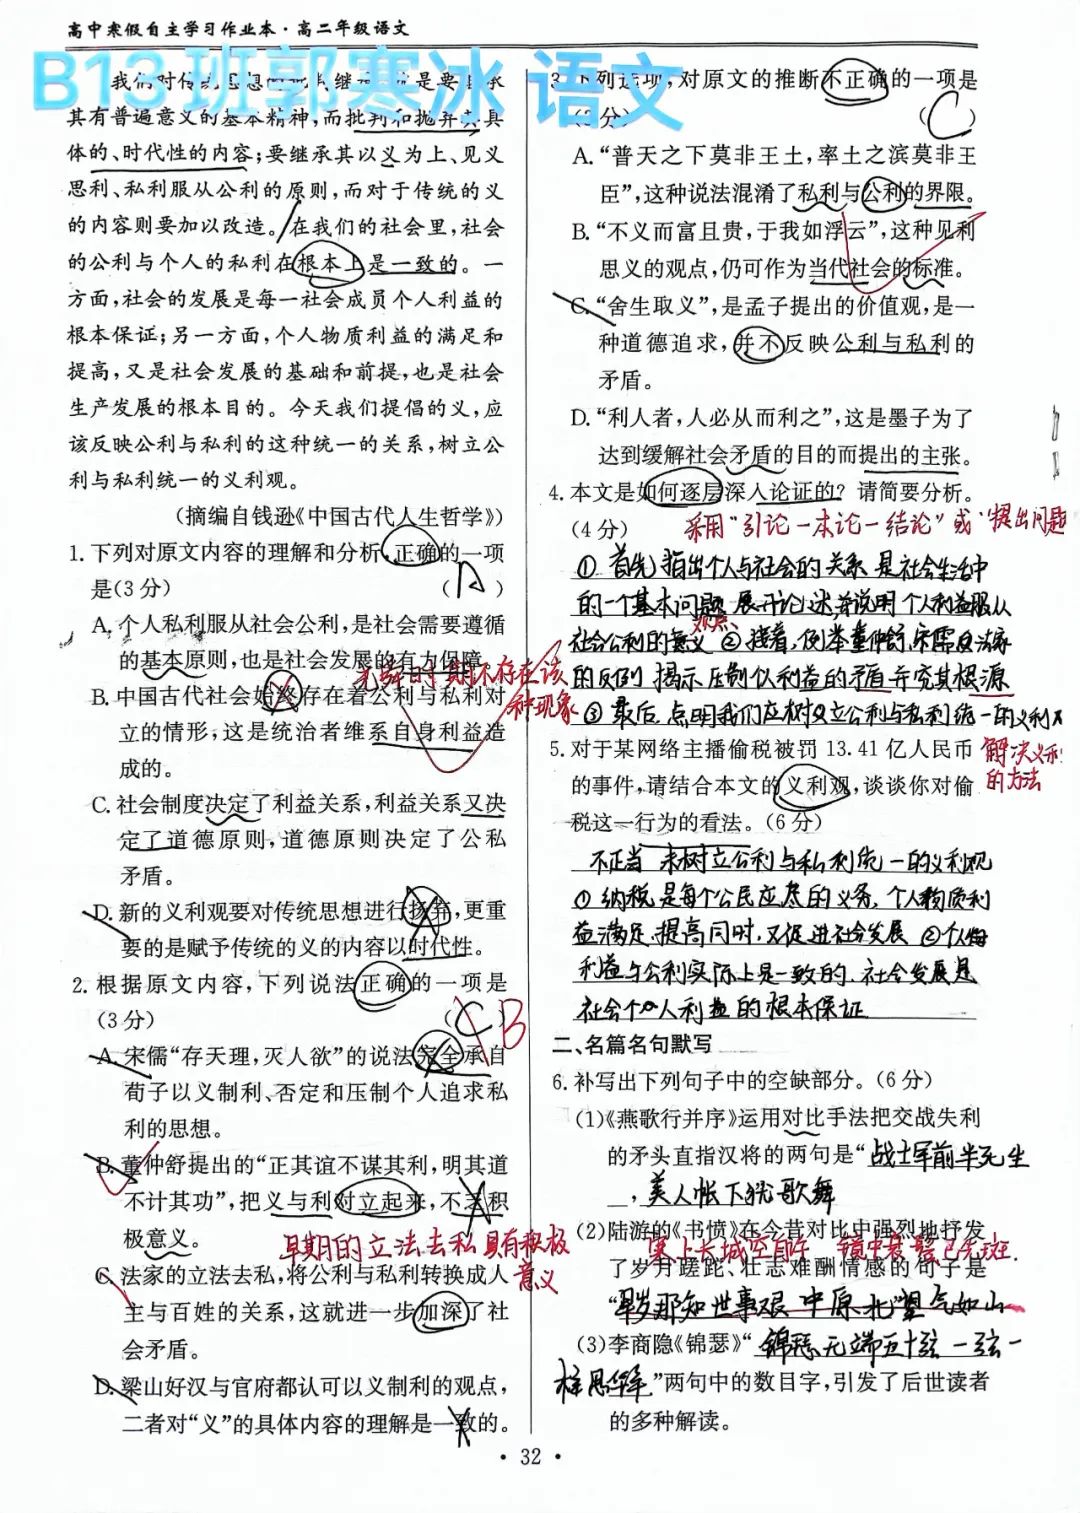 高中寒假自主学习作业本·高二年级语文
B13班郭寒冰 语文
我们对传统思想的批判继承,就是要继承
其有普遍意义的基本精神,而批判和抛弃其具
体的、时代性的内容;要继承其以义为上、见义
思利、私利服从公利的原则,而对于传统的义
的内容则要加以改造。在我们的社会里,社会
的公利与个人的私利在根本上是一致的。一
方面,社会的发展是每一社会成员个人利益的
根本保证;另一方面,个人物质利益的满足和
提高,又是社会发展的基础和前提,也是社会
生产发展的根本目的。今天我们提倡的义,应
该反映公利与私利的这种统一的关系,树立公
利与私利统一的义利观。
(摘编自钱逊《中国古代人生哲学》)
1. 下列对原文内容的理解和分析,正确的一项
是(3分) ( A )
A. 个人私利服从社会公利,是社会需要遵循
的基本原则,也是社会发展的有力保障。
B. 中国古代社会始终存在着公利与私利对
立的情形,这是统治者维系自身利益造
成的。
尧舜时期不存在该
种现象
C. 社会制度决定了利益关系,利益关系又决
定了道德原则,道德原则决定了公私
矛盾。
D. 新的义利观要对传统思想进行扬弃,更重
要的是赋予传统的义的内容以时代性。
2. 根据原文内容,下列说法正确的一项是
(3分) ( C ) B
A. 宋儒“存天理,灭人欲”的说法完全承自
荀子以义制利、否定和压制个人追求私
利的思想。
B. 董仲舒提出的“正其谊不谋其利,明其道
不计其功”,把义与利对立起来,不乏积
极意义。
早期的立法去私具有积极
意义
C. 法家的立法去私,将公利与私利转换成人
主与百姓的关系,这就进一步加深了社
会矛盾。
D. 梁山好汉与官府都认可以义制利的观点,
二者对“义”的具体内容的理解是一致的。
3. 下列选项,对原文的推断不正确的一项是
(3分) ( C )
A. “普天之下莫非王土,率土之滨莫非王
臣”,这种说法混淆了私利与公利的界限。
B. “不义而富且贵,于我如浮云”,这种见利
思义的观点,仍可作为当代社会的标准。
C. “舍生取义”,是孟子提出的价值观,是一
种道德追求,并不反映公利与私利的
矛盾。
D. “利人者,人必从而利之”,这是墨子为了
达到缓解社会矛盾的目的而提出的主张。
4. 本文是如何逐层深入论证的?请简要分析。
(4分) 采用“引论一本论一结论”或“提出问题
① 首先指出个人与社会的关系是社会生活中
的一个基本问题 展开论述,并说明个人利益服从
社会公利的意义 观点、②接着,例举董仲舒、宋儒及法家
的反例 揭示压制私利益的矛盾并究其根源
③ 最后 点明我们应树立公利与私利统一的义利
5. 对于某网络主播偷税被罚13.41亿人民币
的事件,请结合本文的义利观,谈谈你对偷
税这一行为的看法。(6分)
解决义利
的方法
不正当 未树立公利与私利统一的义利观
① 纳税是每个公民应尽的义务,个人物质利
益满足、提高同时,又促进社会发展 ②个人
利益与公利实际上是一致的,社会发展是
社会个人利益的根本保证
二、名篇名句默写
6. 补写出下列句子中的空缺部分。(6分)
(1)《燕歌行并序》运用对比手法把交战失利
的矛头直指汉将的两句是“战士军前半死生
,美人帐下犹歌舞
(2)陆游的《书愤》在今昔对比中强烈地抒发
塞上长城空自许 镜中衰鬓已先斑.
了岁月蹉跎、壮志难酬情感的句子是
“早岁那知世事艰 中原北望气如山
(3)李商隐《锦瑟》“锦瑟无端五十弦 一弦一
柱思华年”两句中的数目字,引发了后世读者
的多种解读。
· 32 ·